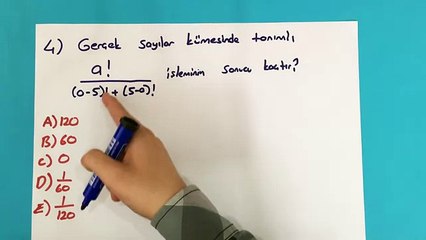 4) Gerçek sayılar kümesinde tanımlı
a!
(a-5)! + (5-a)!
işleminin sonucu kaçtır?
A) 120
B) 60
C) 0
D) 1/60
E) 1/120